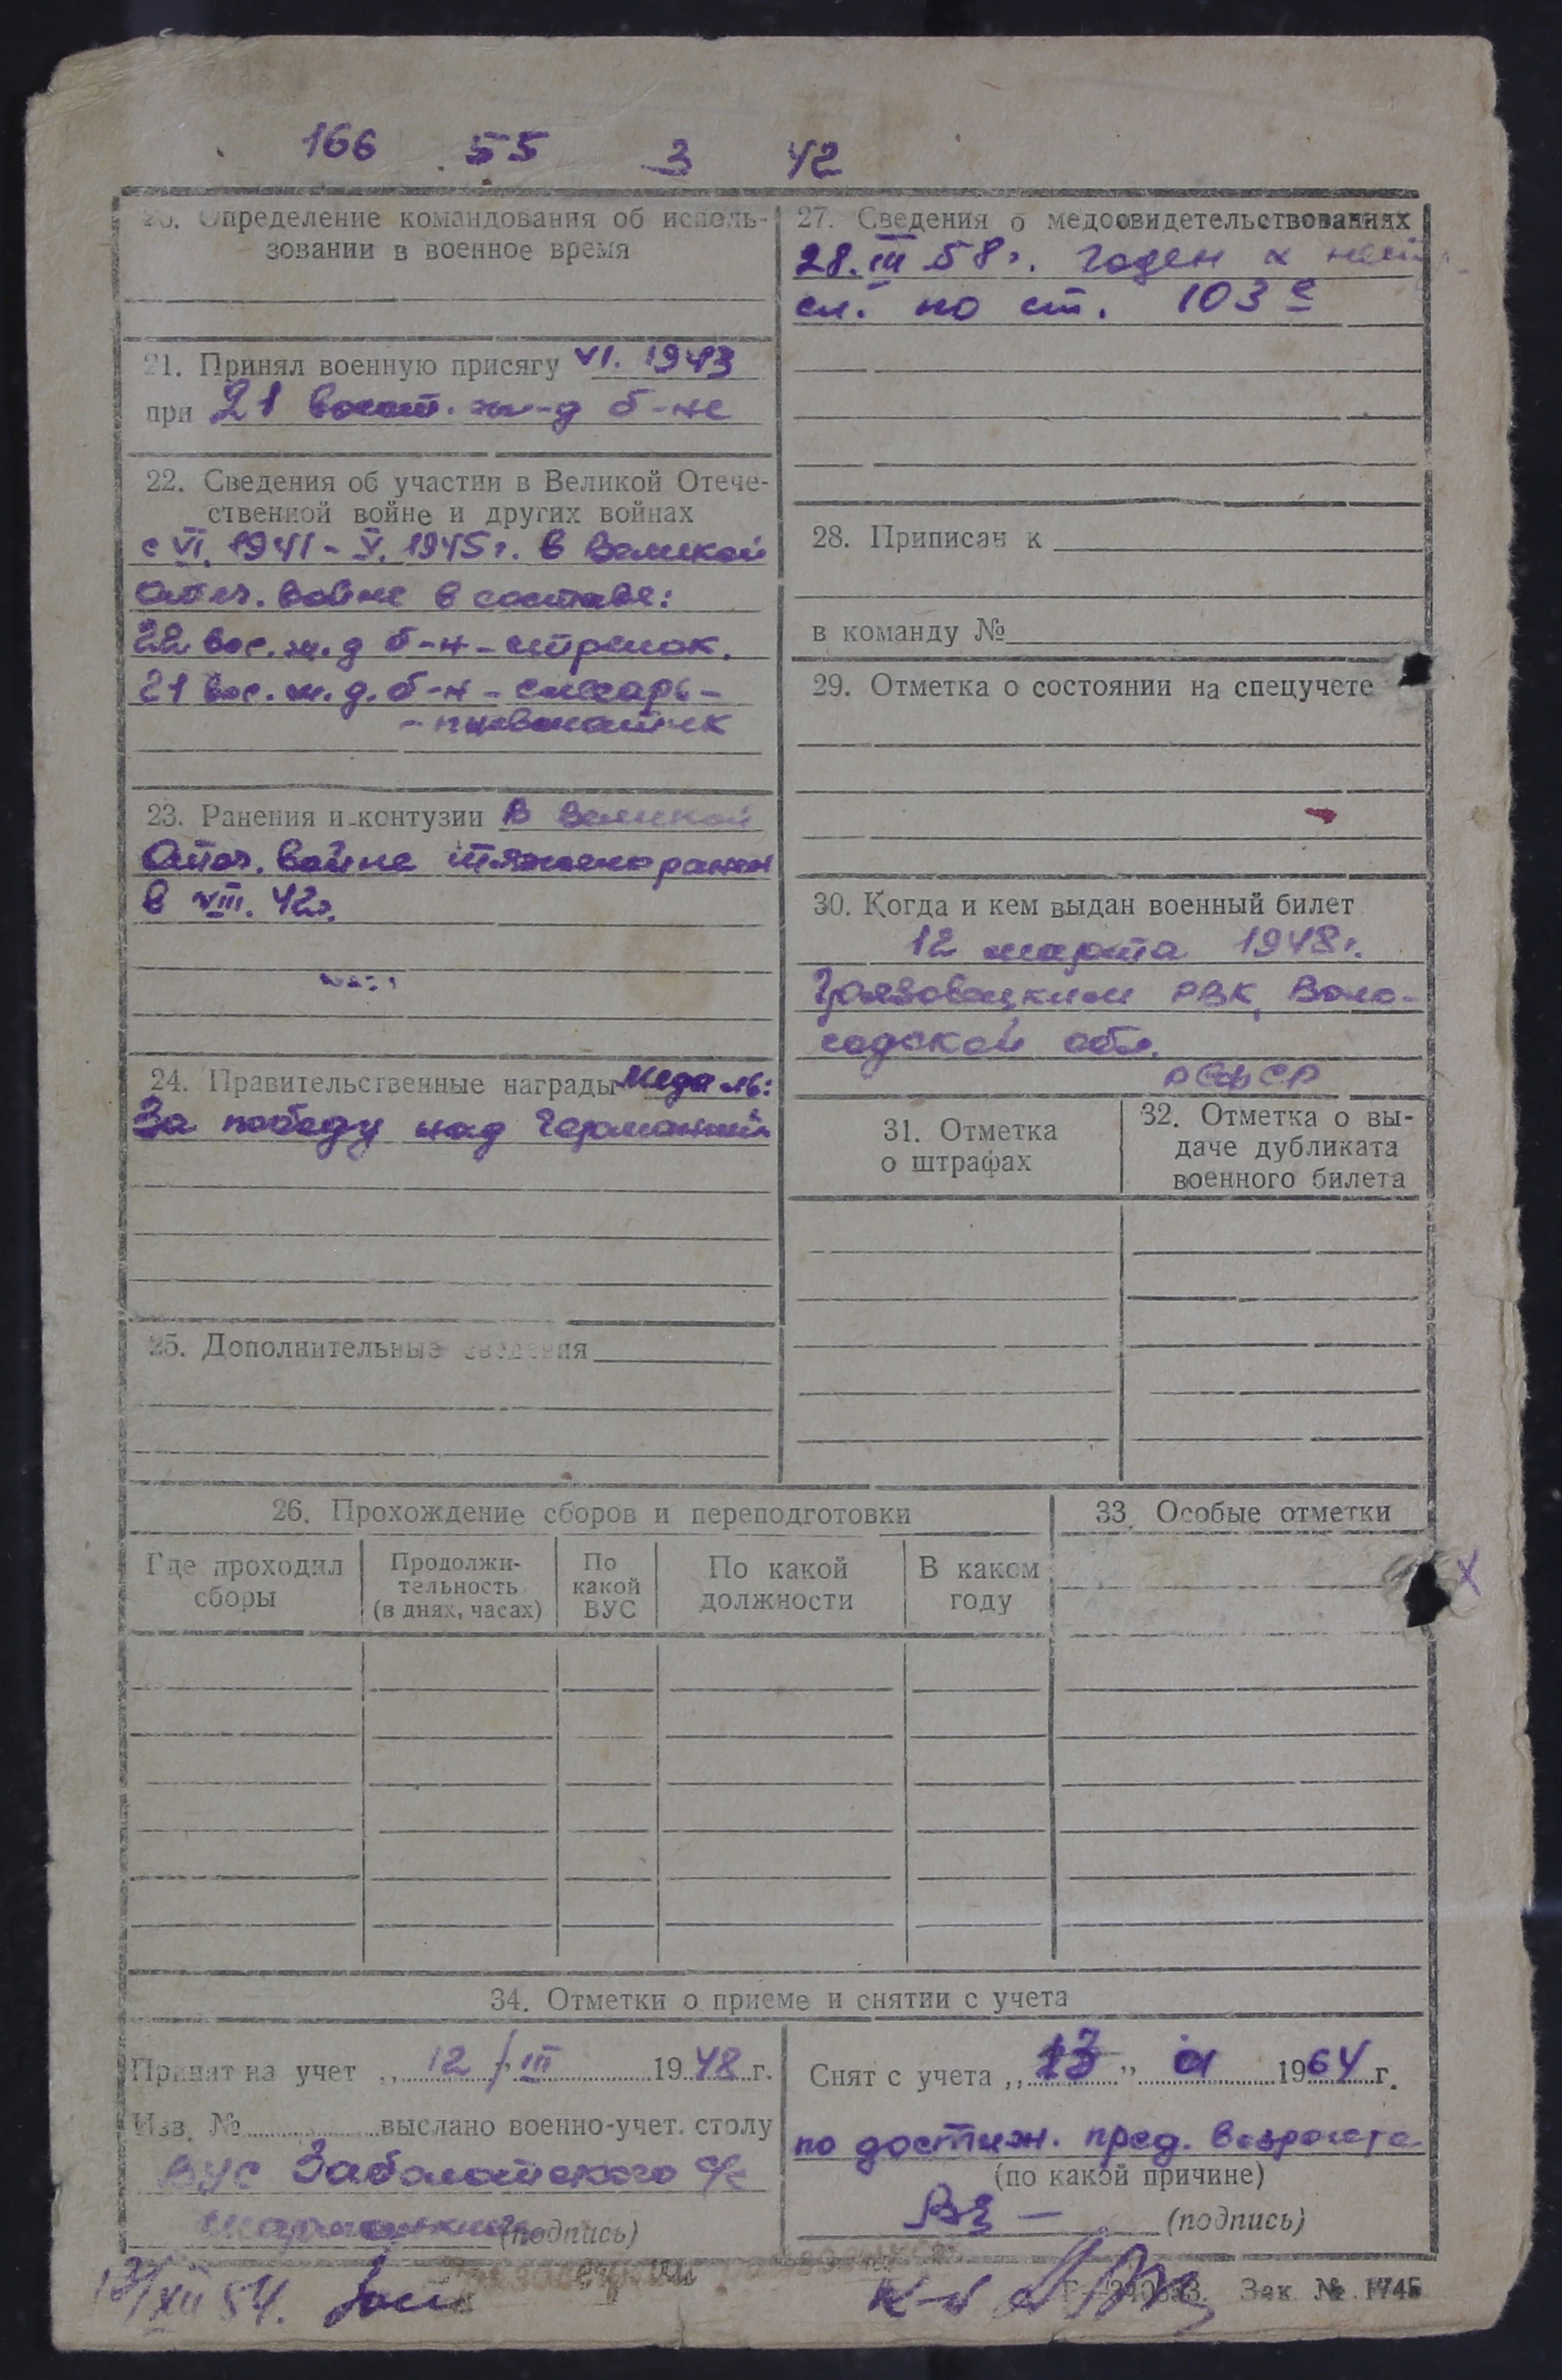 166 55 3 42
20. Определение командования об исполь-
зовании в военное время
21. Принял военную присягу VI. 1943
при 21 восст. ж-д б-не
22. Сведения об участии в Великой Отече-
ственной войне и других войнах
с VI. 1941 - V. 1945 г. в Великой
Отеч. войне в составе:
22 вос. ж. д б-н - стрелок.
21 вос. ж. д. б-н - слесарь-
23. Ранения и контузии В Великой
Отеч. войне тяжело ранен
в VIII. 42г.
24. Правительственные награды Медаль:
За победу над Германией
25. Дополнительные сведения
27. Сведения о медосвидетельствованиях
28. III 58 г. годен к
сл. по ст. 103 с
28. Приписан к
в команду №
29. Отметка о состоянии на спецучете
30. Когда и кем выдан военный билет
12 марта 1948 г.
Грязовецким РВК, Воло-
годской обл.
РСФСР
31. Отметка
о штрафах
32. Отметка о вы-
даче дубликата
военного билета
26. Прохождение сборов и переподготовки
Где проходил
сборы
Продолжи-
тельность
(в днях, часах)
По
какой
ВУС
По какой
должности
В каком
году
33. Особые отметки
34. Отметки о приеме и снятии с учета
Принят на учет „ 12 / III 1948 г.
Изв. № выслано военно-учет. столу
ВУС Заболотского с/с
(подпись)
Снят с учета „ 13 " 01 1964 г.
по достиж. пред. возраста
(по какой причине)
(подпись)
XII 54.
к-н
Зак. № 1745